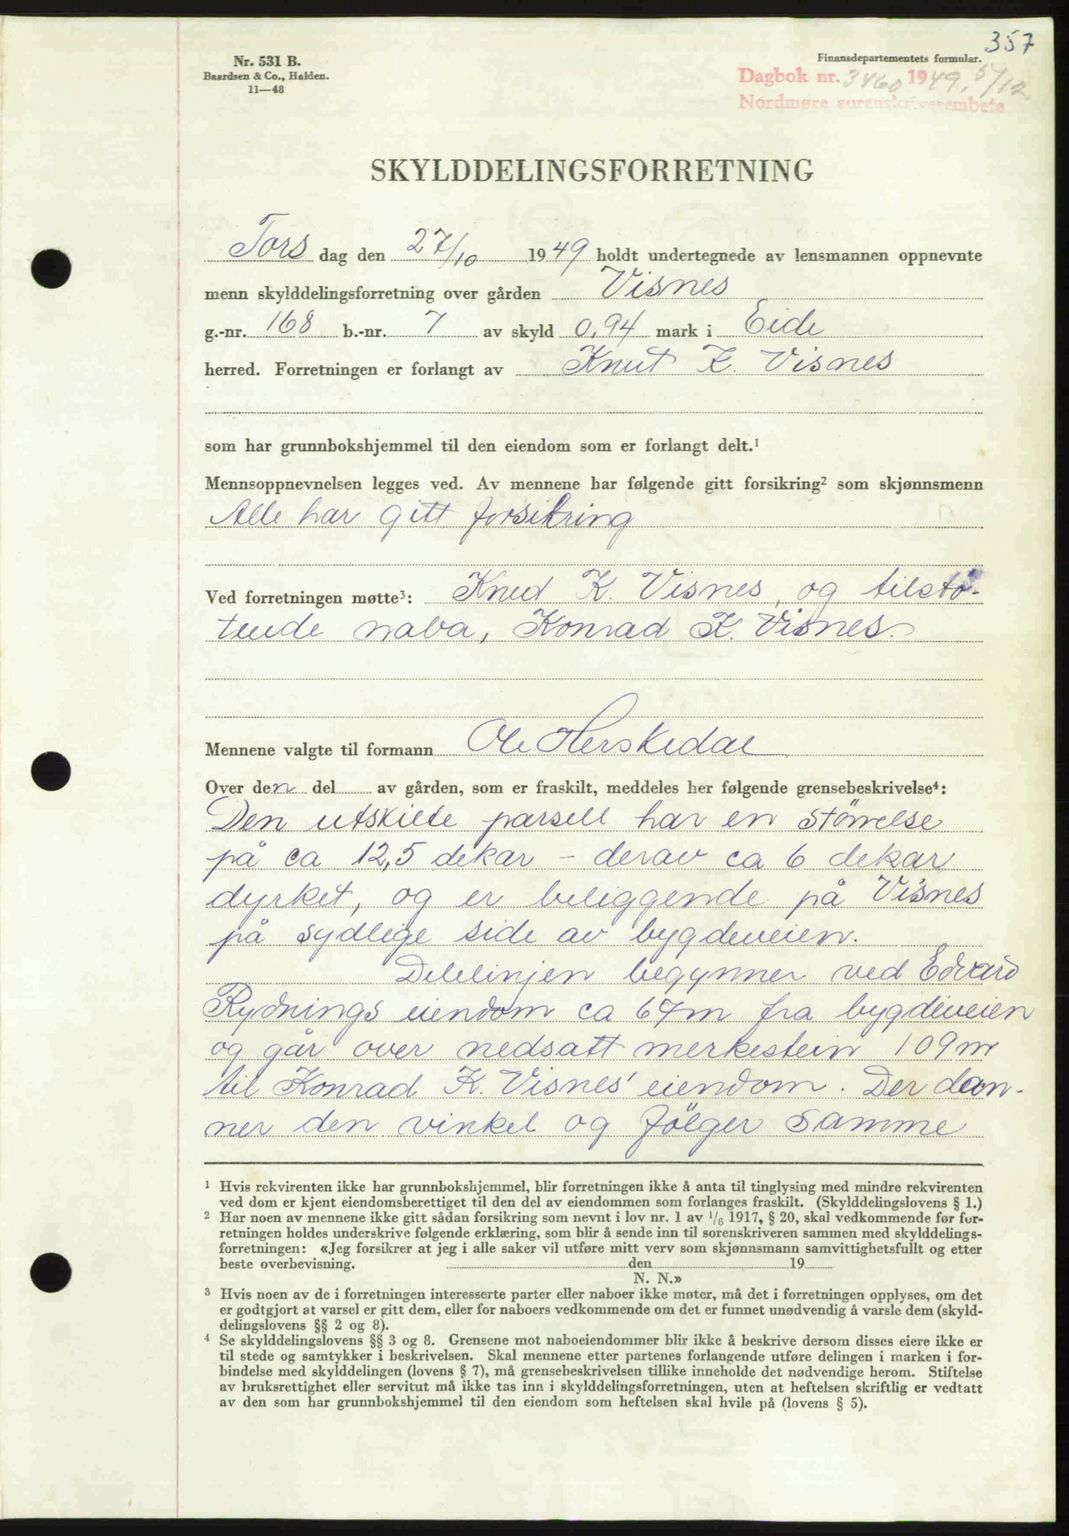 357
Nr. 531 B.
Baardsen & Co., Halden.
11—48
Finansdepartementets formular.
Dagbok nr. 3460 1949, 5/12
Nordmøre sorenskriverembete
SKYLDDELINGSFORRETNING
Tors dag den 27/10 1949 holdt undertegnede av lensmannen oppnevnte
menn skylddelingsforretning over gården Visnes
g.-nr. 168 b.-nr. 7 av skyld 0,94 mark i Eide
herred. Forretningen er forlangt av Knut K. Visnes
som har grunnbokshjemmel til den eiendom som er forlangt delt.¹
Mennsoppnevnelsen legges ved. Av mennene har følgende gitt forsikring² som skjønnsmenn
Alle har gitt forsikring
Ved forretningen møtte³: Knud K. Visnes, og tilstø-
tende naba, Konrad K. Visnes.
Mennene valgte til formann Ole Herskedal
Over den del av gården, som er fraskilt, meddeles her følgende grensebeskrivelse⁴:
Den utskilte parsell har en störrelse
på ca 12,5 dekar - derav ca 6 dekar
dyrket, og er beliggende på Visnes
på sydlege side av bygdeveien.
Delelinjen begynner ved Edvard
Rydnings eiendom ca 67m fra bygdeveien
og går over nedsatt merkestein 109m
til Konrad K. Visnes' eiendom. Der dan-
ner den vinkel og fölger samme
¹ Hvis rekvirenten ikke har grunnbokshjemmel, blir forretningen ikke å anta til tinglysing med mindre rekvirenten
ved dom er kjent eiendomsberettiget til den del av eiendommen som forlanges fraskilt. (Skylddelingslovens § 1.)
² Har noen av mennene ikke gitt sådan forsikring som nevnt i lov nr. 1 av 1/6 1917, § 20, skal vedkommende før for-
retningen holdes underskrive følgende erklæring, som blir å sende inn til sorenskriveren sammen med skylddelings-
forretningen: «Jeg forsikrer at jeg i alle saker vil utføre mitt verv som skjønnsmann samvittighetsfullt og etter
beste overbevisning. den 19
N. N.»
³ Hvis noen av de i forretningen interesserte parter eller naboer ikke møter, må det i forretningen opplyses, om det
er godtgjort at varsel er gitt dem, eller for naboers vedkommende om det er funnet unødvendig å varsle dem (skyld-
delingslovens §§ 2 og 8).
⁴ Se skylddelingslovens §§ 3 og 8. Grensene mot naboeiendommer blir ikke å beskrive dersom disses eiere ikke er
til stede og samtykker i beskrivelsen. Skal mennene etter partenes forlangende utføre delingen i marken i for-
bindelse med skylddelingen (lovens § 7), må grensebeskrivelsen tillike inneholde det nødvendige herom. Stiftelse
av bruksrettighet eller servitut må ikke tas inn i skylddelingsforretningen, uten at heftelsen skriftlig er vedtatt
av den som har grunnbokshjemmel til den eiendom som heftelsen skal hvile på (lovens § 5).